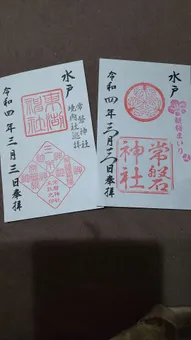 水戸
まいり
常磐
神社
令和四年三月三日奉拝
水戸
常磐神社
境内社巡拝
東湖
神社
令和四年三月三日奉拝